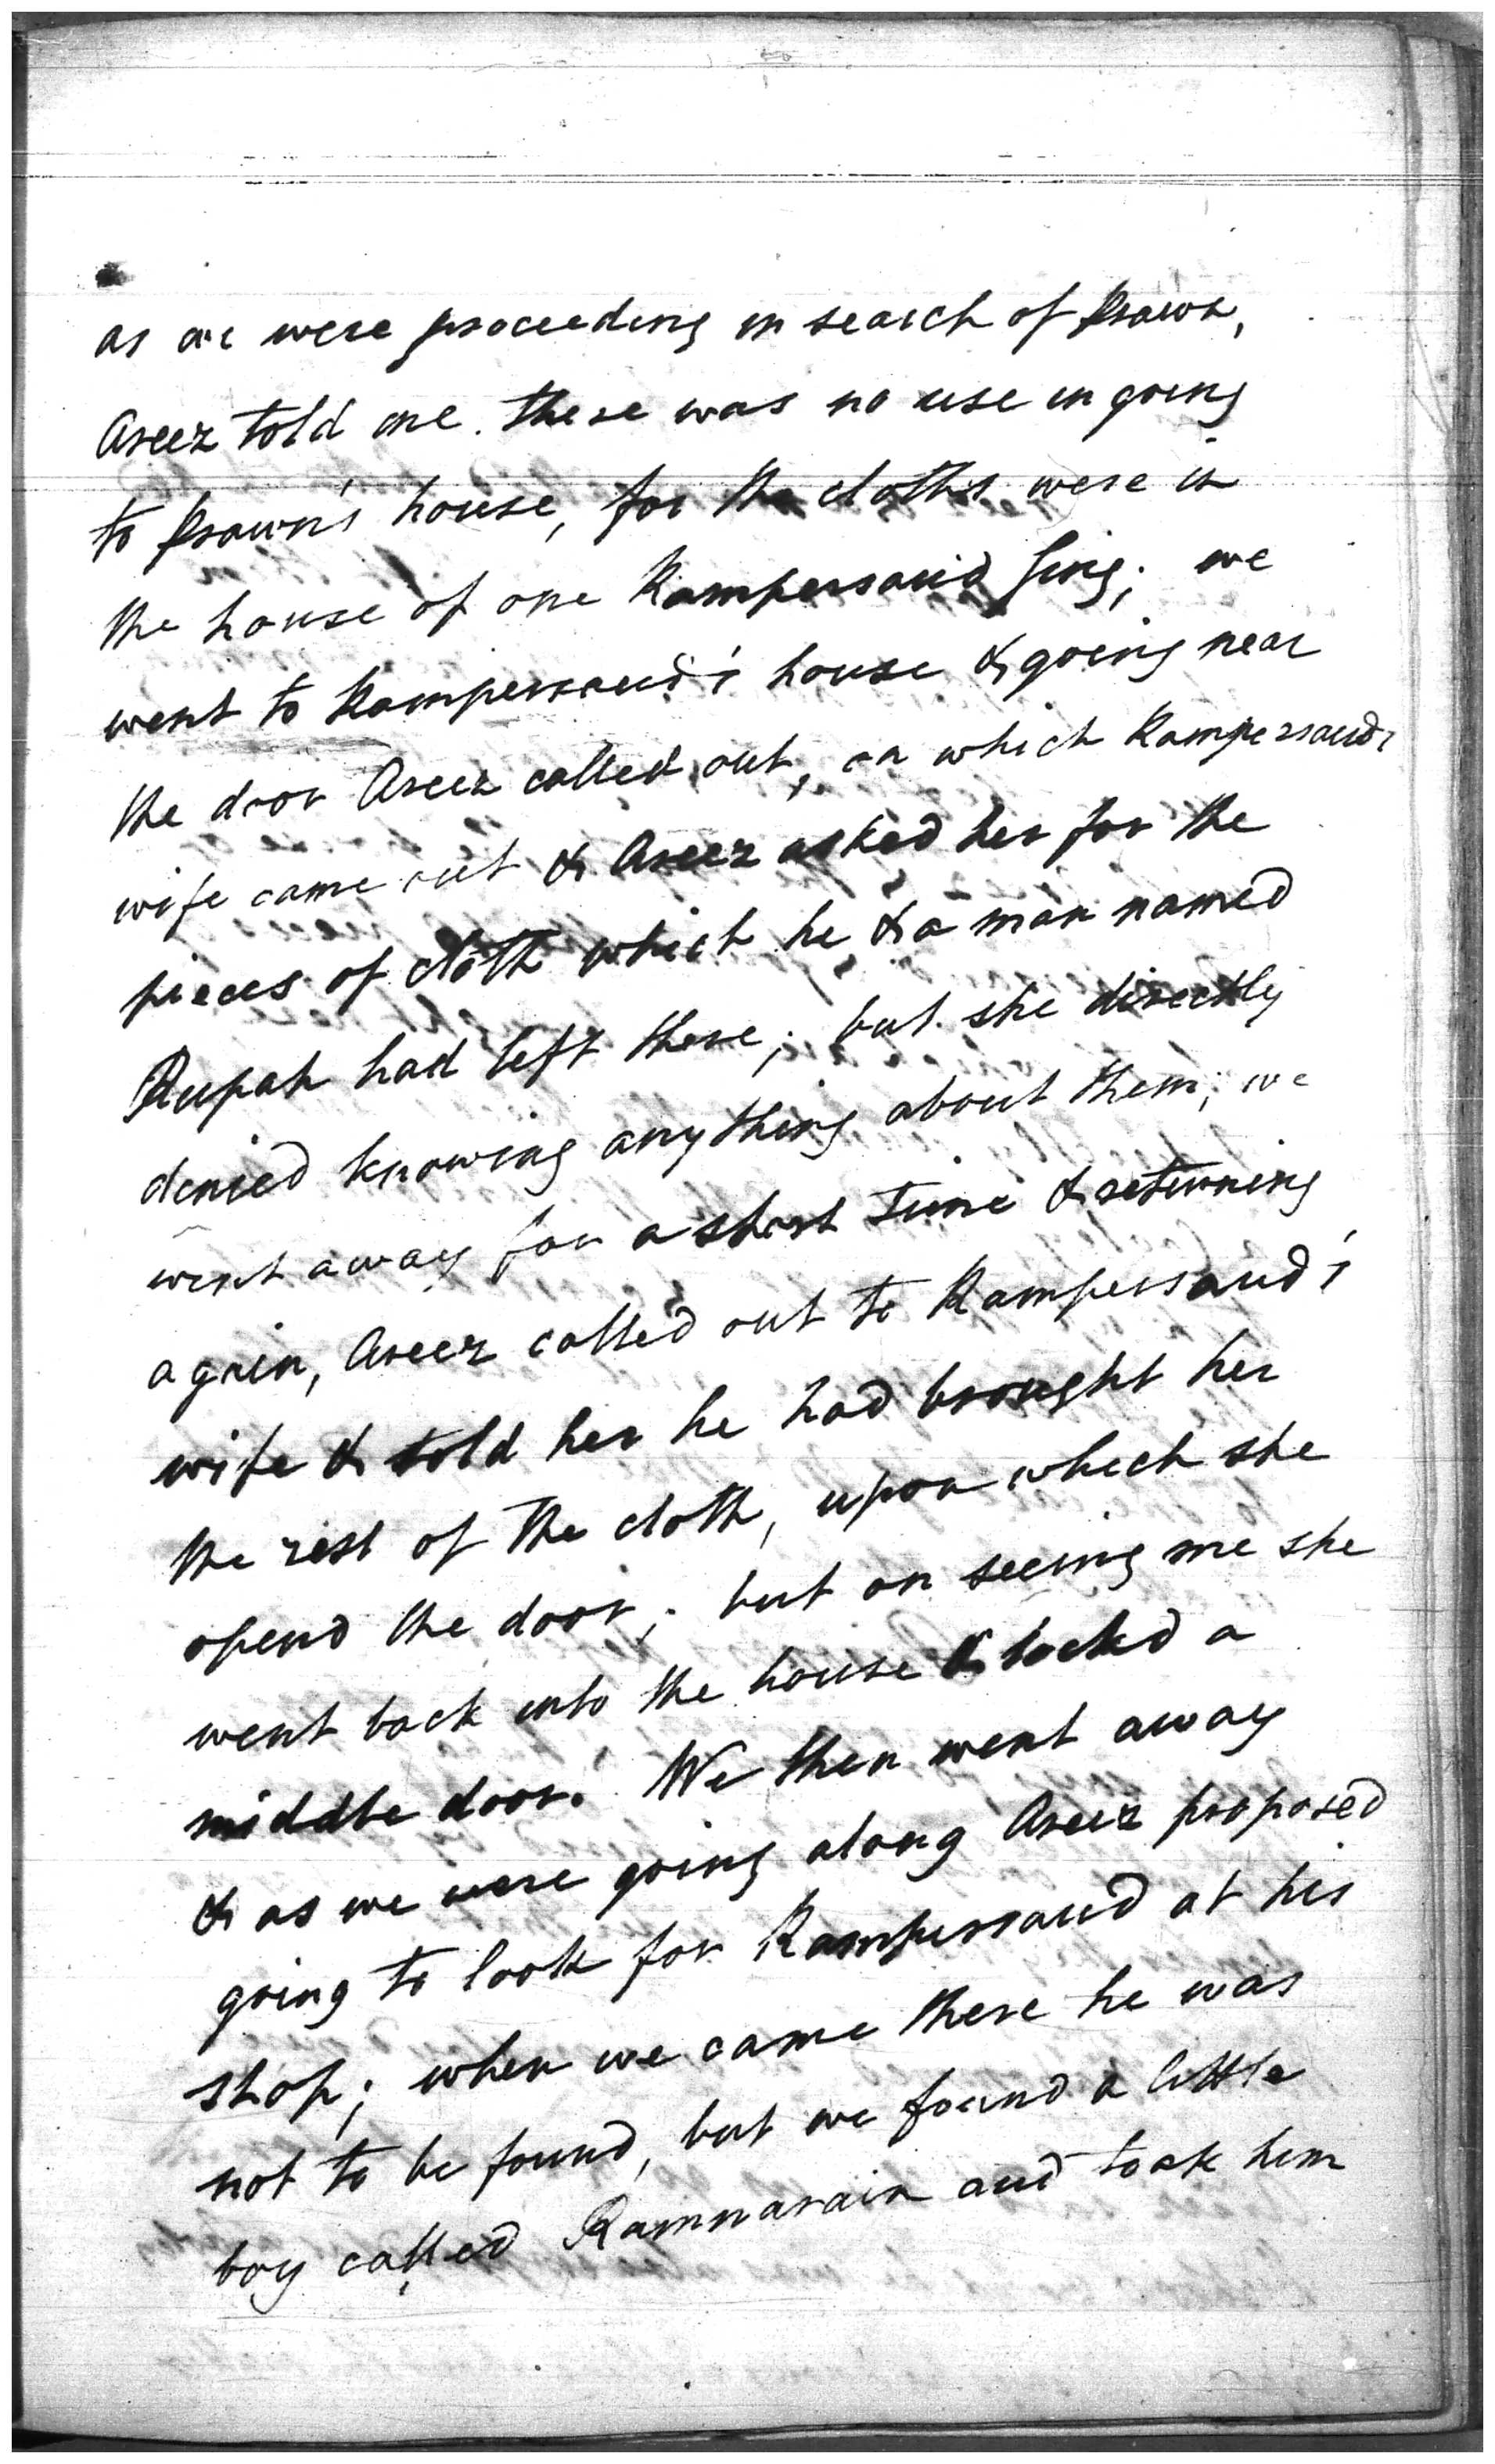 as we were proceeding in search of Prawn,
Aseez told me. there was no use in going
to Prawn's house, for the cloths were in
the house of one Rampersaud Sing; we
went to Rampersaud's house & going near
the door Aseez called out, on which Rampersauds
wife came out & Aseez asked her for the
pieces of cloth which he & a man named
Rupah had left there; but she directly
denied knowing anything about them; we
went away for a short time & returning
again, Aseez called out to Rampersaud's
wife & told her he had brought her
the rest of the cloth, upon which she
opend the door; but on seeing me she
went back into the house & lockd a
middle door. We then went away
& as we were going along Aseez proposed
going to look for Rampersaud at his
shop; when we came there he was
not to be found, but we found a little
boy called Ramnarain and took him